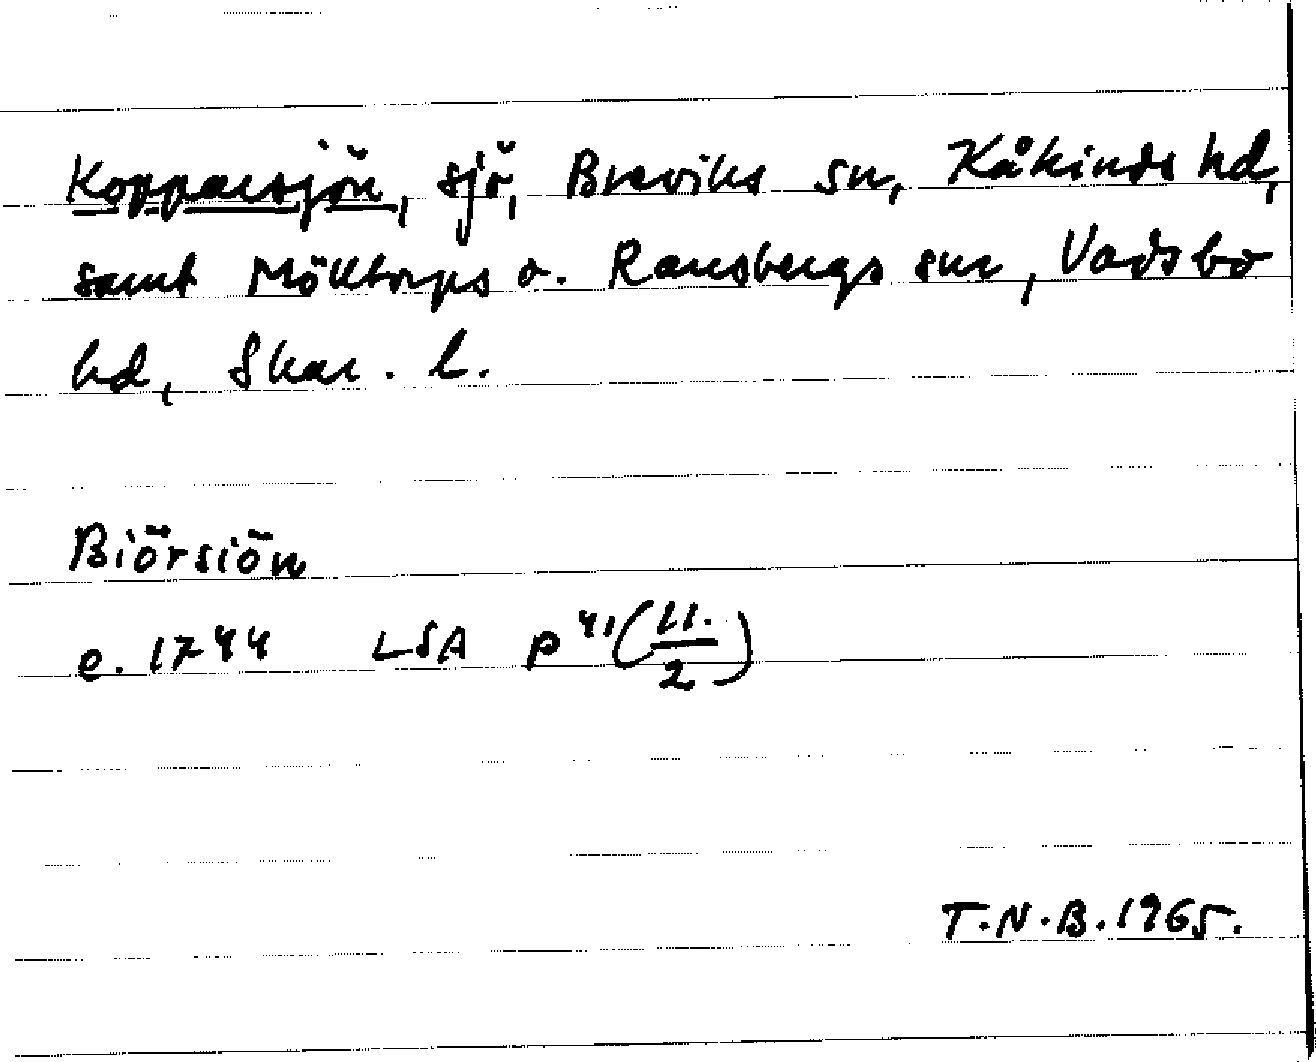 Kopparsjön, sjö, Breviks sn, Kåkinds hd,
samt Mölltorps o. Ransbergs snr, Vadsbo
hd, Skar. l.
Biörsiön
e. 1744 LSA p 41 (11./2)
T.N.B. 1965.